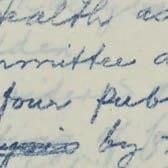 ealth a
mmittee a
four pub
by